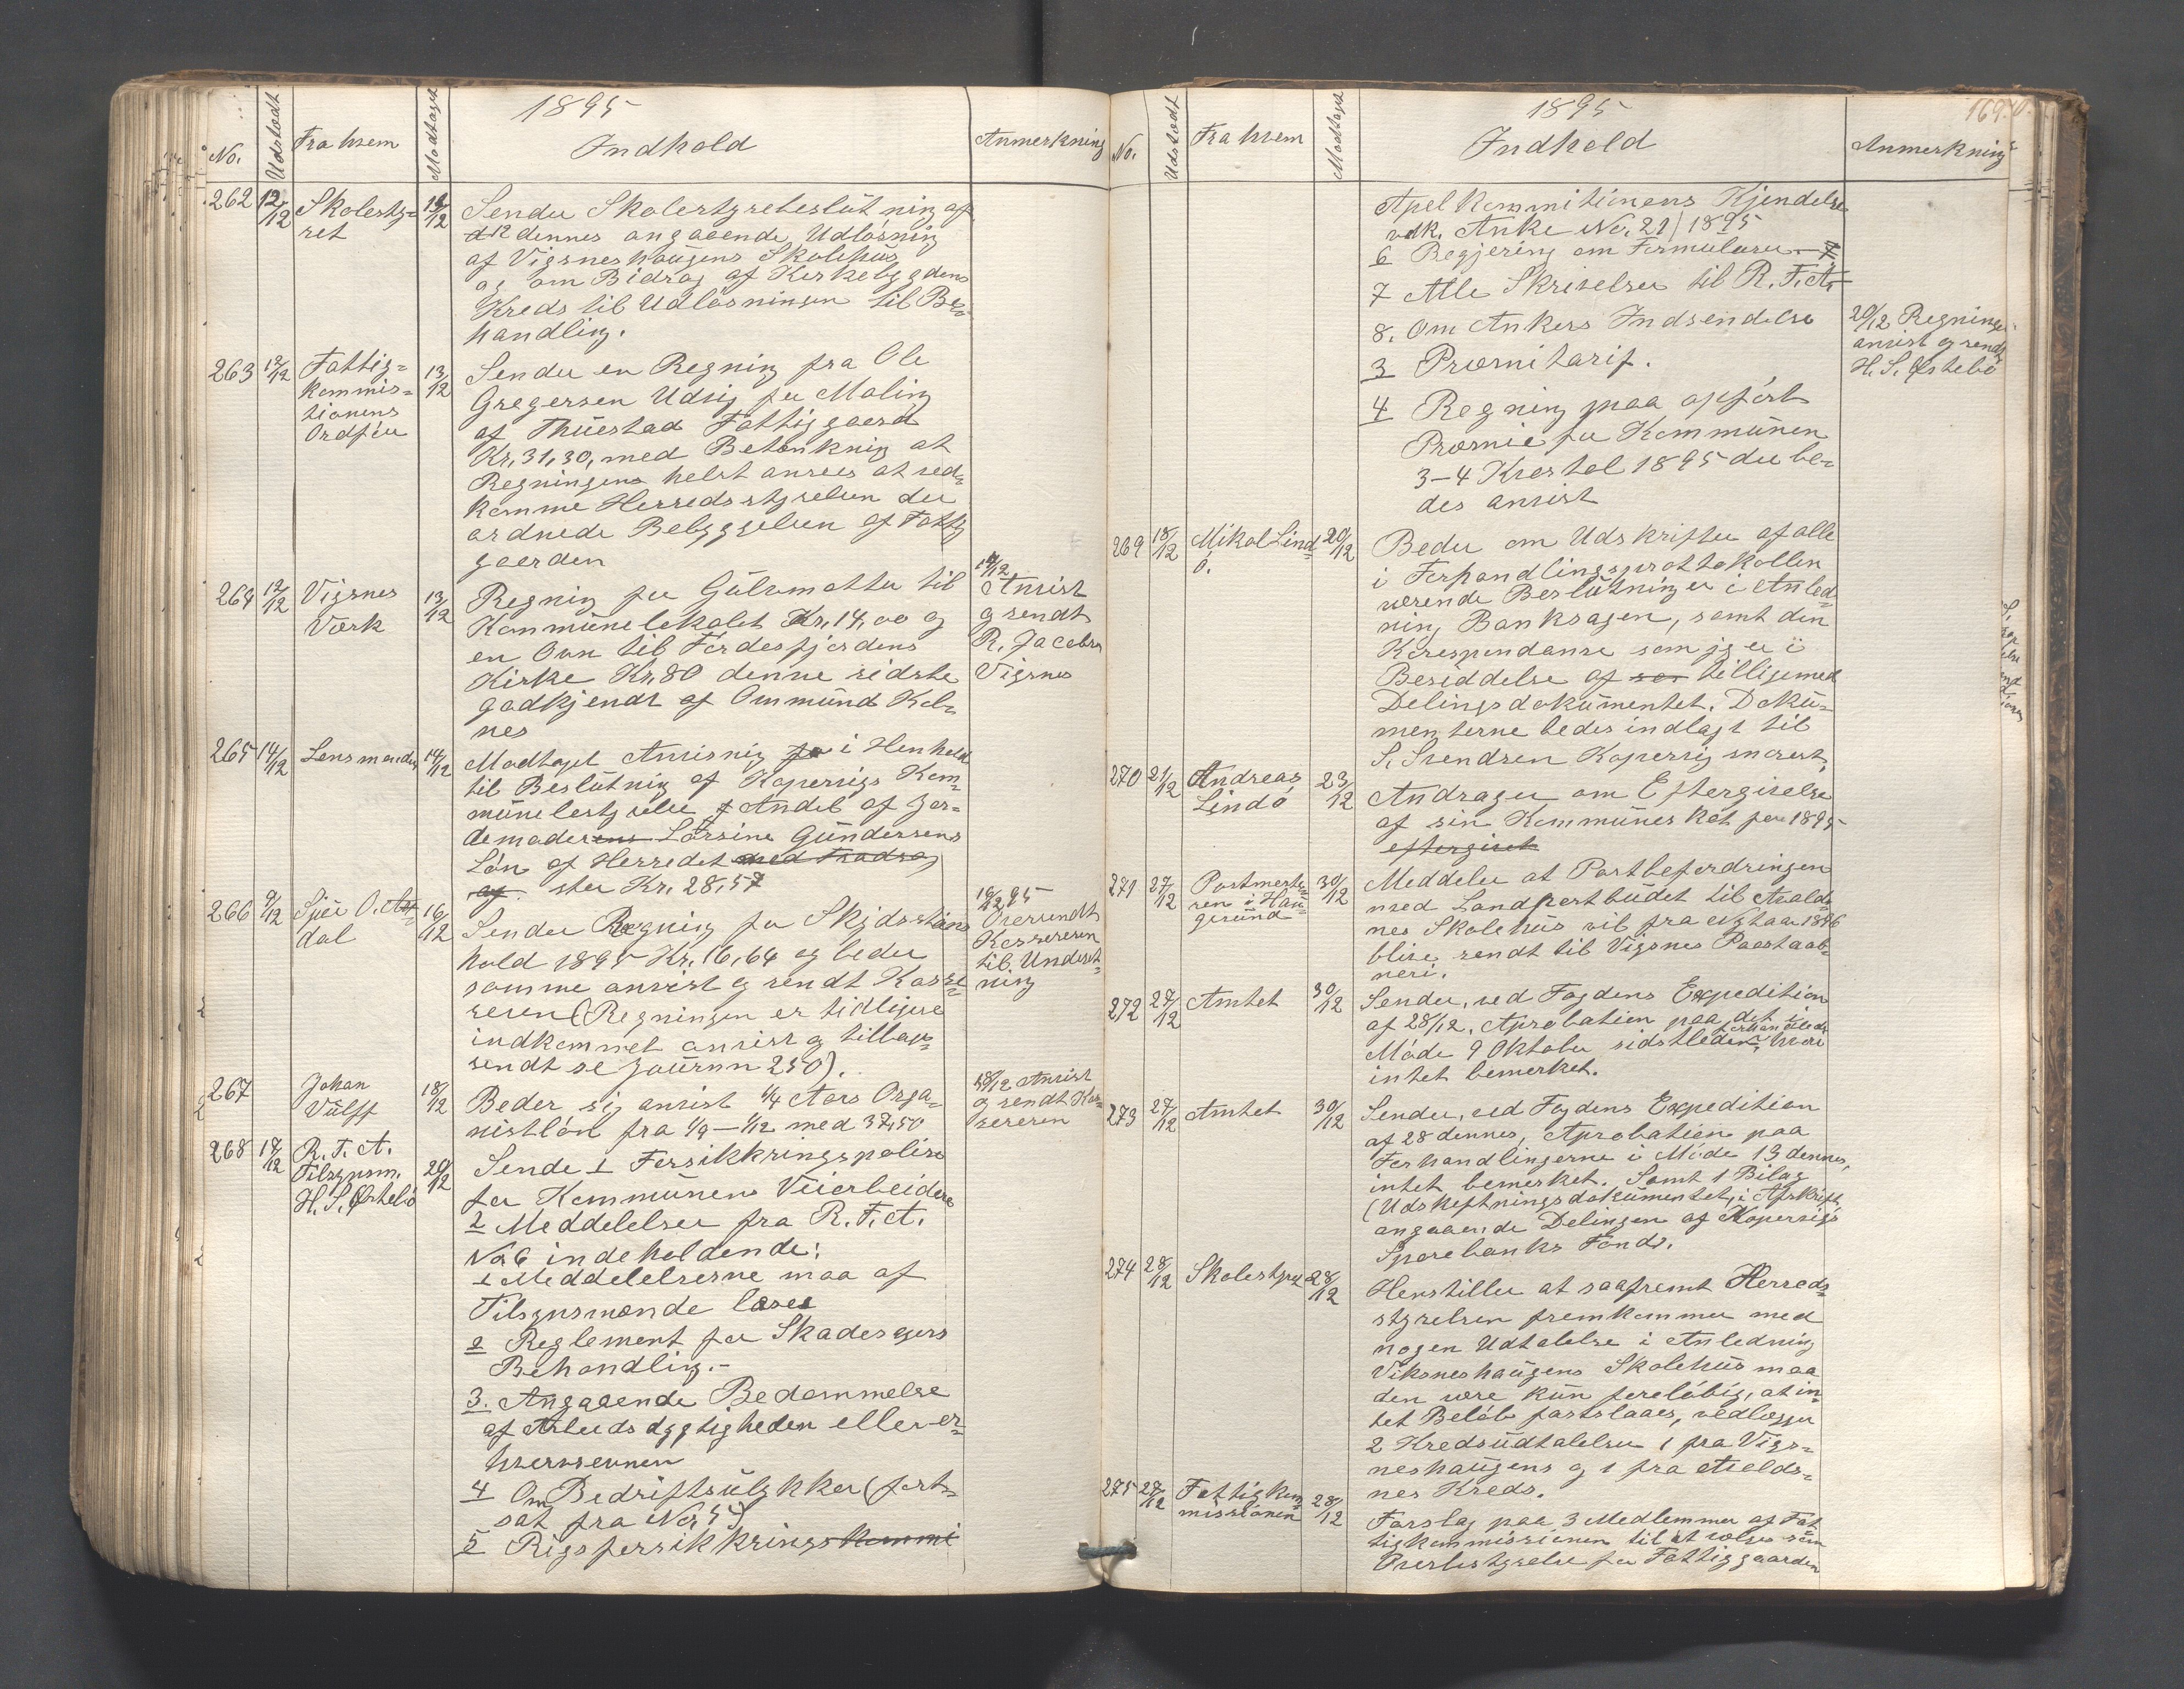 1895
No.
Udstædt
Fra hvem
Modtaget
Indhold
Anmerkning
262 12/12 Skolesty=
ret
12/12
Sender Skolestyrebeslutning af
d 12 dennes angaaende Udløsning
af Vigsneshaugens Skolehus
og om Bidrag af Kirkebygdens
Kreds til Udløsningen til Be=
handling.
263 12/12 Fattig=
kommis=
tionens
Ordfører
13/12
Sender en Regning fra Ole
Gregersen Udvig for Maling
af Thuestad Fattiggaard
Kr. 31,30, med Betenkning at
Regningens helst ansees at ved=
komme Herredsstyrelsen der
ordnede Bebyggelsen af Fattig
gaarden
264 12/12 Vigsnes
Værk
13/12
Regning for Gulvmatter til
Kommunelokalet Kr. 14,00 og
en Ovn til Førdesfjordens
Kirke Kr. 80 denne sidste
godkjendt af Ommund Kol=
nes
14/12
Anvist
og sendt
R. Jacobsen
Vigsnes
265 14/12 Lensmanden
14/12
Modtaget Anvisning fo i Henhold
til Beslutning af Kopervigs Kom=
munestyrelse f Andel af Jor=
demoderens Larsine Gundersens
Løn af Herredet med Fradrag
af stor Kr. 28,57
266 9/12 Sjur O. Aa=
dal
16/12
Sender Regning for Skjdsstians
hold 1895 Kr. 16,64 og beder
samme anvist og sendt Kasse=
reren (Regningen er tidligere
indkommet anvist og tilbage=
sendt se Journn 250).
16/12 95
Oversendt
Kassereren
til Underet=
ning
267 Johan
Wulff
18/12
Beder sig anvist 1/4 Aars Orga=
nistløn fra 1/9 – 1/12 med 37,50
18/12 Anvist
og sendt Kas=
sereren
268 17/12 R. F. A.
Tilsynsm.
H. S. Østebø
20/12
Sende 1 Forsikkringspolise
for Kommunens Veiarbeidere
2 Meddelelser fra R. F. A.
No 6 indeholdende:
1 Meddelelserne maa af
Tilsynsmænde læses
2 Reglement for Skadesagers
Behandling.-
3. Angaaende Bedømmelse
af Arbeidsdygtigheden eller er=
hvervsevnen
4 Om Bedriftsulykker (fort=
sat fra No. 5)
5 Rigsforsikkrings kommi
169.
1895
No.
Udstædt
Fra hvem
Modtaget
Indhold
Anmerkning
Apelkommitionens Kjendelse
vedk. Anke No. 21/1895
6 Begjering om Formularer – 7
7 Alle Skrivelser til R. F. A.
8. Om Ankers Indsendelse
3 Præmitarif.
4 Regning paa opført
Præmie for Kommunen
3–4 Kvartal 1895 der be=
des anvist
20/12 Regningen
anvist og sendt
H. S. Østebø
269 18/12 Mikal Lind=
ø.
20/12
Beder om Udskrifter af alle
i Forhandlingsprottokollen
værende Beslutninger i Anled=
ning Banksagen, samt den
Korespondanse som jeg er i
Besiddelse af sær tilligemed
Delingsdokumentet. Doku=
menterne bedes indlagt til
S. Svendsen Kopervig snarest.
270 21/12 Andreas
Lindø
23/12
Andrager om Eftergivelse
af sin Kommuneskat for 1895
eftergivet
271 27/12 Postmeste=
ren i Hau=
gesund
30/12
Meddeler at Postbefordringen
med Landpostbudet til Avalds=
nes Skolehus vil fra nytaar 1896
blive sendt til Vigsnes Poostaab=
neri.
272 27/12 Amtet
30/12
Sender, ved Fogdens Expedition
af 28/12, Aprobation paa det i
Møde 9 Oktober sidstleden, forhandlede hvori
intet bemerket.
273 27/12 Amtet
30/12
Sender, ved Fogdens Expedition
af 28 dennes, Aprobation paa
Forhandlingerne i Møde 13 dennes,
intet bemerket. Samt 1 Bilag
(Udskiftningsdokumentet, i Afskrift,
angaaende Delingen af Kopervigs
Sparebanks Fond).
274 28/12 Skolestyret
28/12
Henstiller at saafremt Herreds=
styrelsen fremkommer med
nogen Udtalelse i Anledning
Viksneshaugens Skolehus maa
den være kun foreløbig, at in=
tet Beløb fastslaaes, vedlægger
2 Kredsudtalelser 1 fra Vigs=
neshaugens og 1 fra Avalds=
nes Kreds.
275 27/12 Fattigkom=
missionen
28/12
Forslag paa 3 Medlemmer af Fat
tigkommissionen til at vælges som
Overbestyrelse for Fattiggaarden